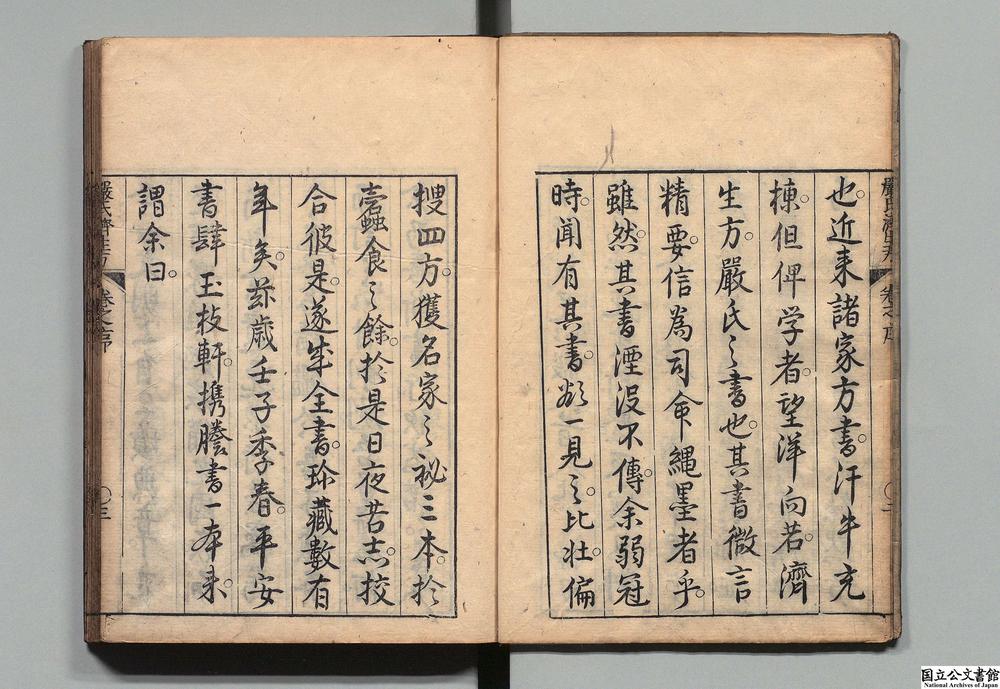 也。近来諸家方書。汗牛充
棟。但俾学者。望洋向若。濟
生方。嚴氏之書也。其書微言
精要。信為司命縄墨者乎。
雖然。其書湮没不傳。余弱冠
時。聞有其書。欲一見之。比壮。偏
搜四方。獲名家之祕三本。於
蠹蟲食之餘。於是日夜苦志。挍
合彼是。遂成全書。珎藏數有
年矣。茲歳壬子季春。平安
書肆玉枝軒。携謄書一本来。
謂余曰。
嚴氏濟生方 卷之序 〇二
嚴氏濟生方 卷之序 〇三
国立公文書館
National Archives of Japan